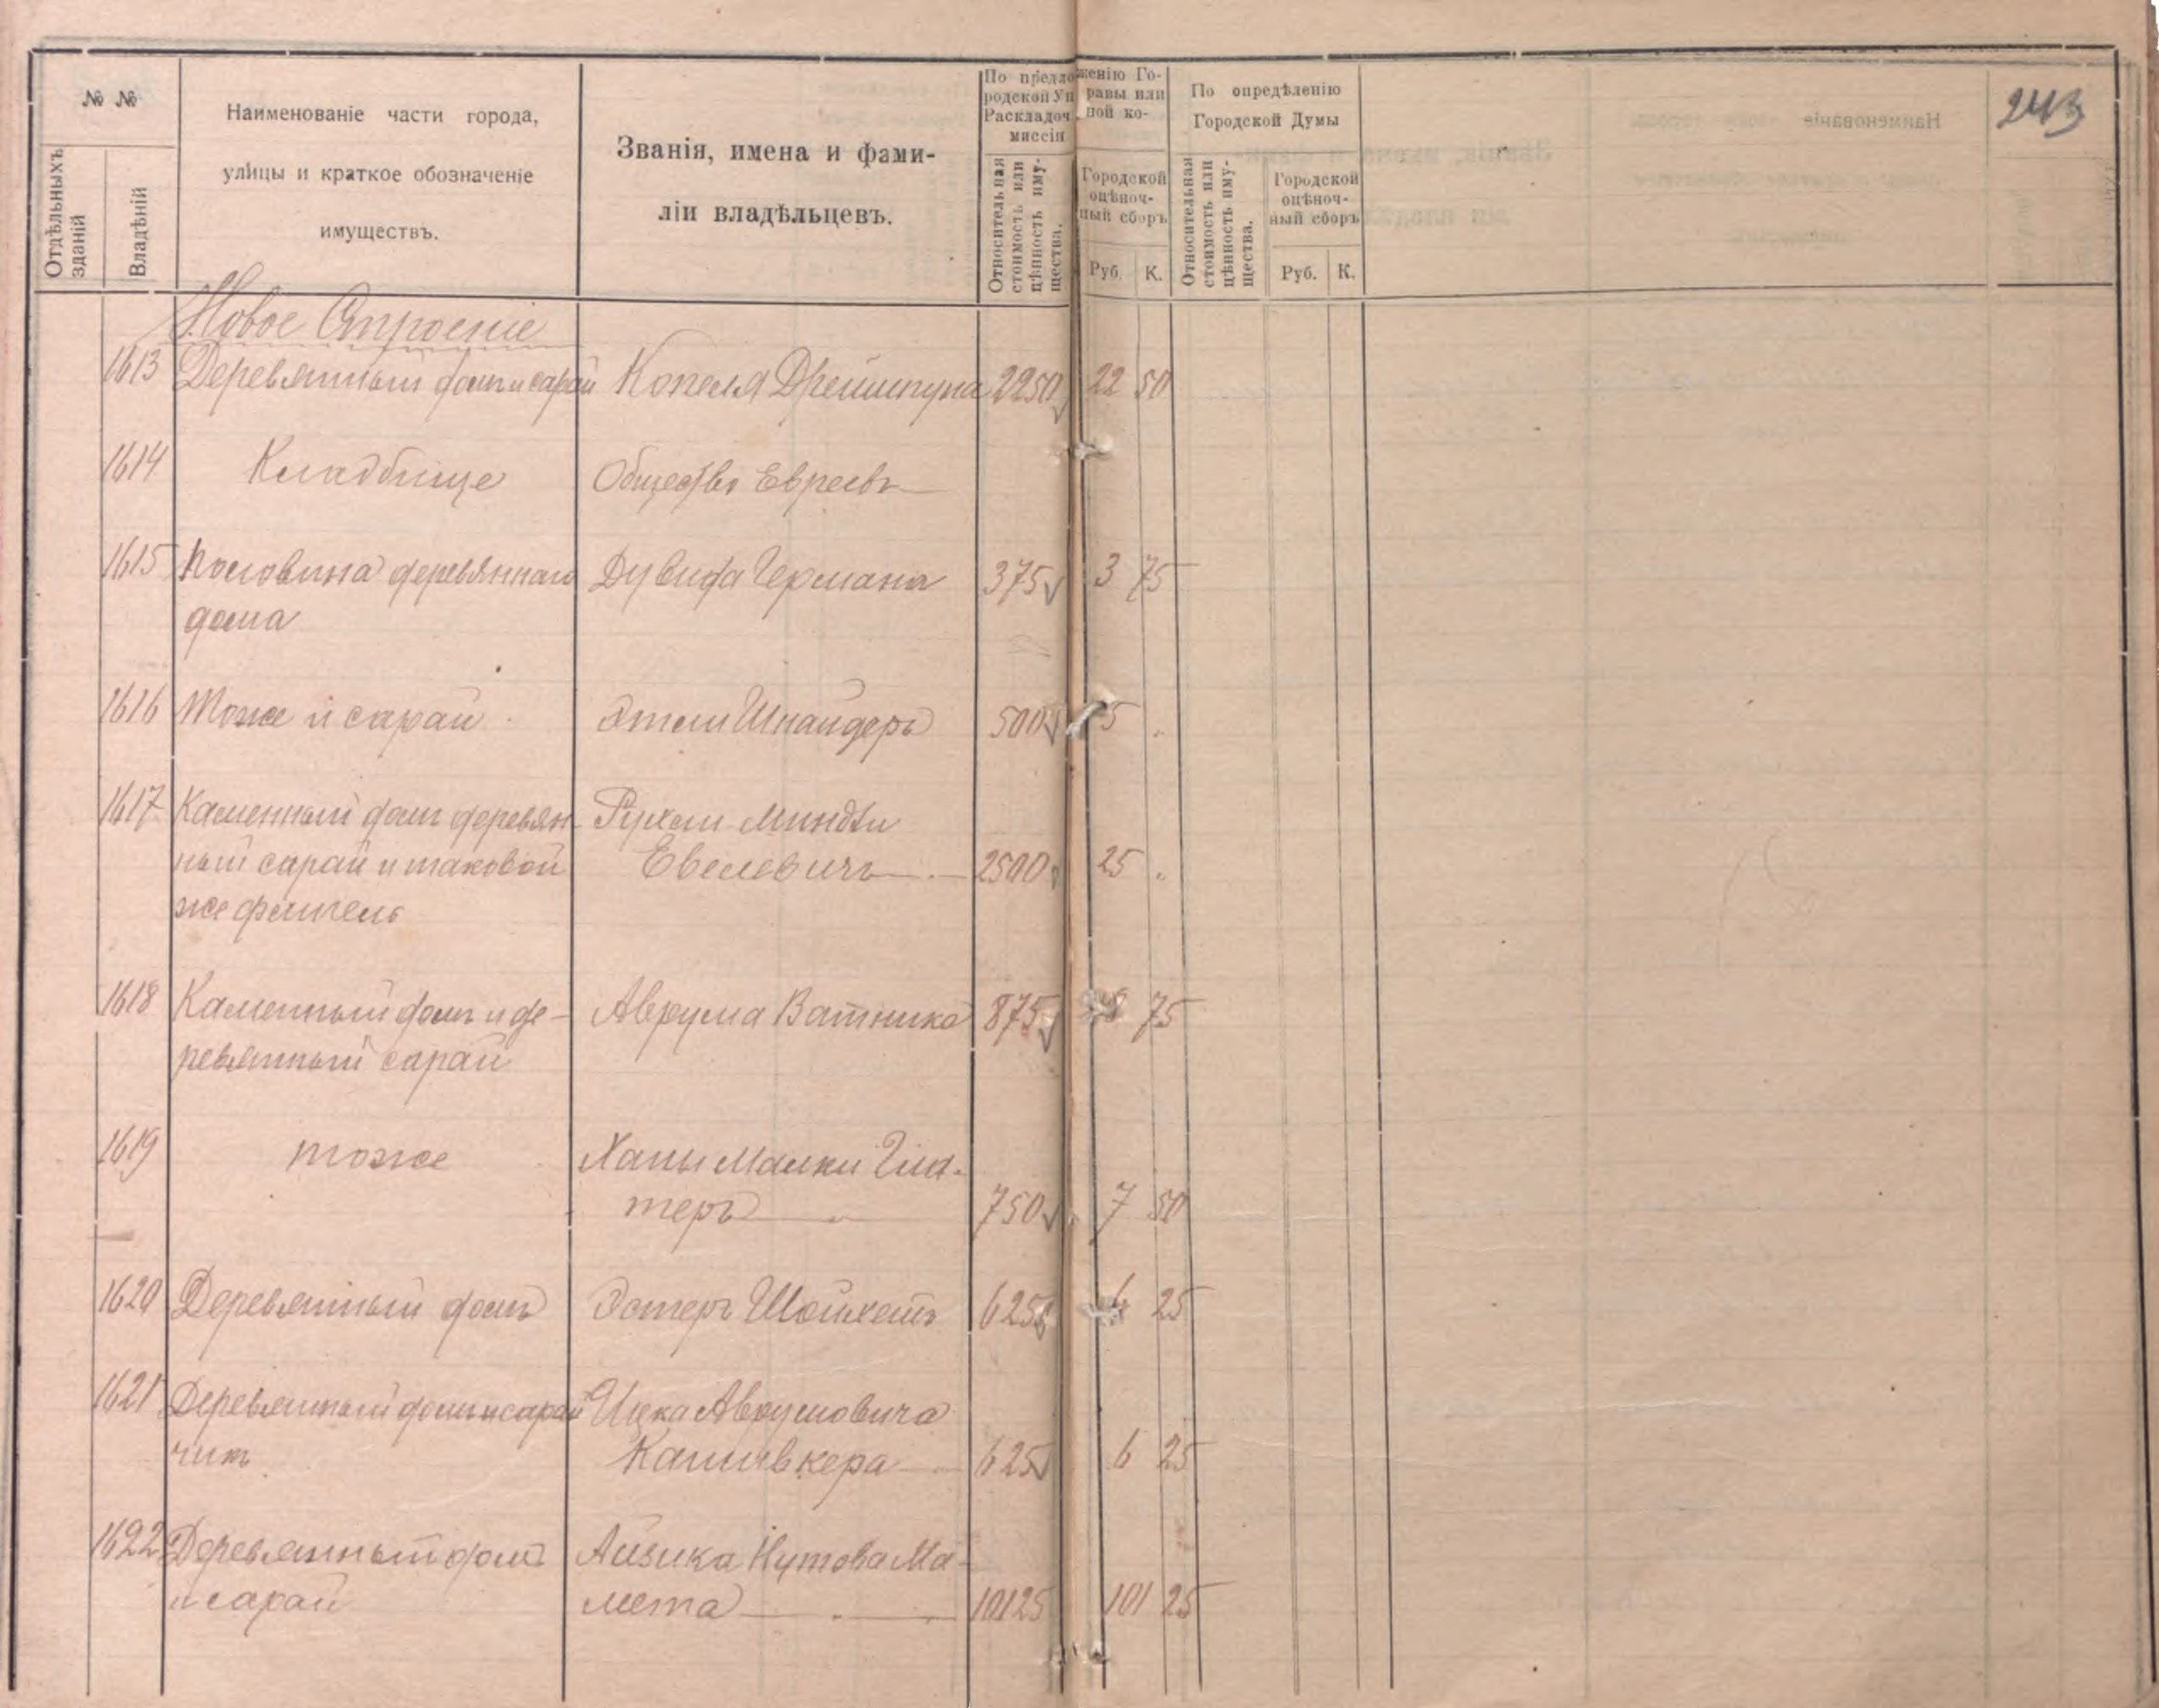 № №
Отдѣльныхъ зданій
Владѣній
Наименованіе части города,
улицы и краткое обозначеніе
имуществъ.
Званія, имена и фами-
ліи владѣльцевъ.
По предложенію Го-
родской Управы или
Раскладочной ко-
миссіи
Относительная
стоимость или
цѣнность иму-
щества.
Городской
оцѣноч-
ный сборъ
Руб. К.
По опредѣленію
Городской Думы
Относительная
стоимость или
цѣнность иму-
щества.
Городской
оцѣноч-
ный сборъ
Руб. К.
243
Новое Строеніе
1613 Деревянный домъ и сарай Копеля 2250 22 50
1614 Кладбище Общество Евреевъ
1615 Половина деревяннаго Дувида Германа 375 3 75
дома
1616 Тоже и сарай Этели Шнайдеръ 500 5 "
1617 Каменный домъ деревян- Рухли Миндли
ный сарай и таковой Евелевичъ 2500 25 "
же флигель
1618 Каменный домъ и де- Аврума Ватника 875 8 75
ревянный сарай
1619 тоже Ханы Малки Гил-
теръ 750 7 50
1620 Деревянный домъ Эстеръ Шойхетъ 625 6 25
1621 Деревянный домъ и сарай Ицка Аврумовича
чикъ 625 6 25
1622 Деревянный домъ Айзика Нутова Ма-
и сарай мета 10125 101 25